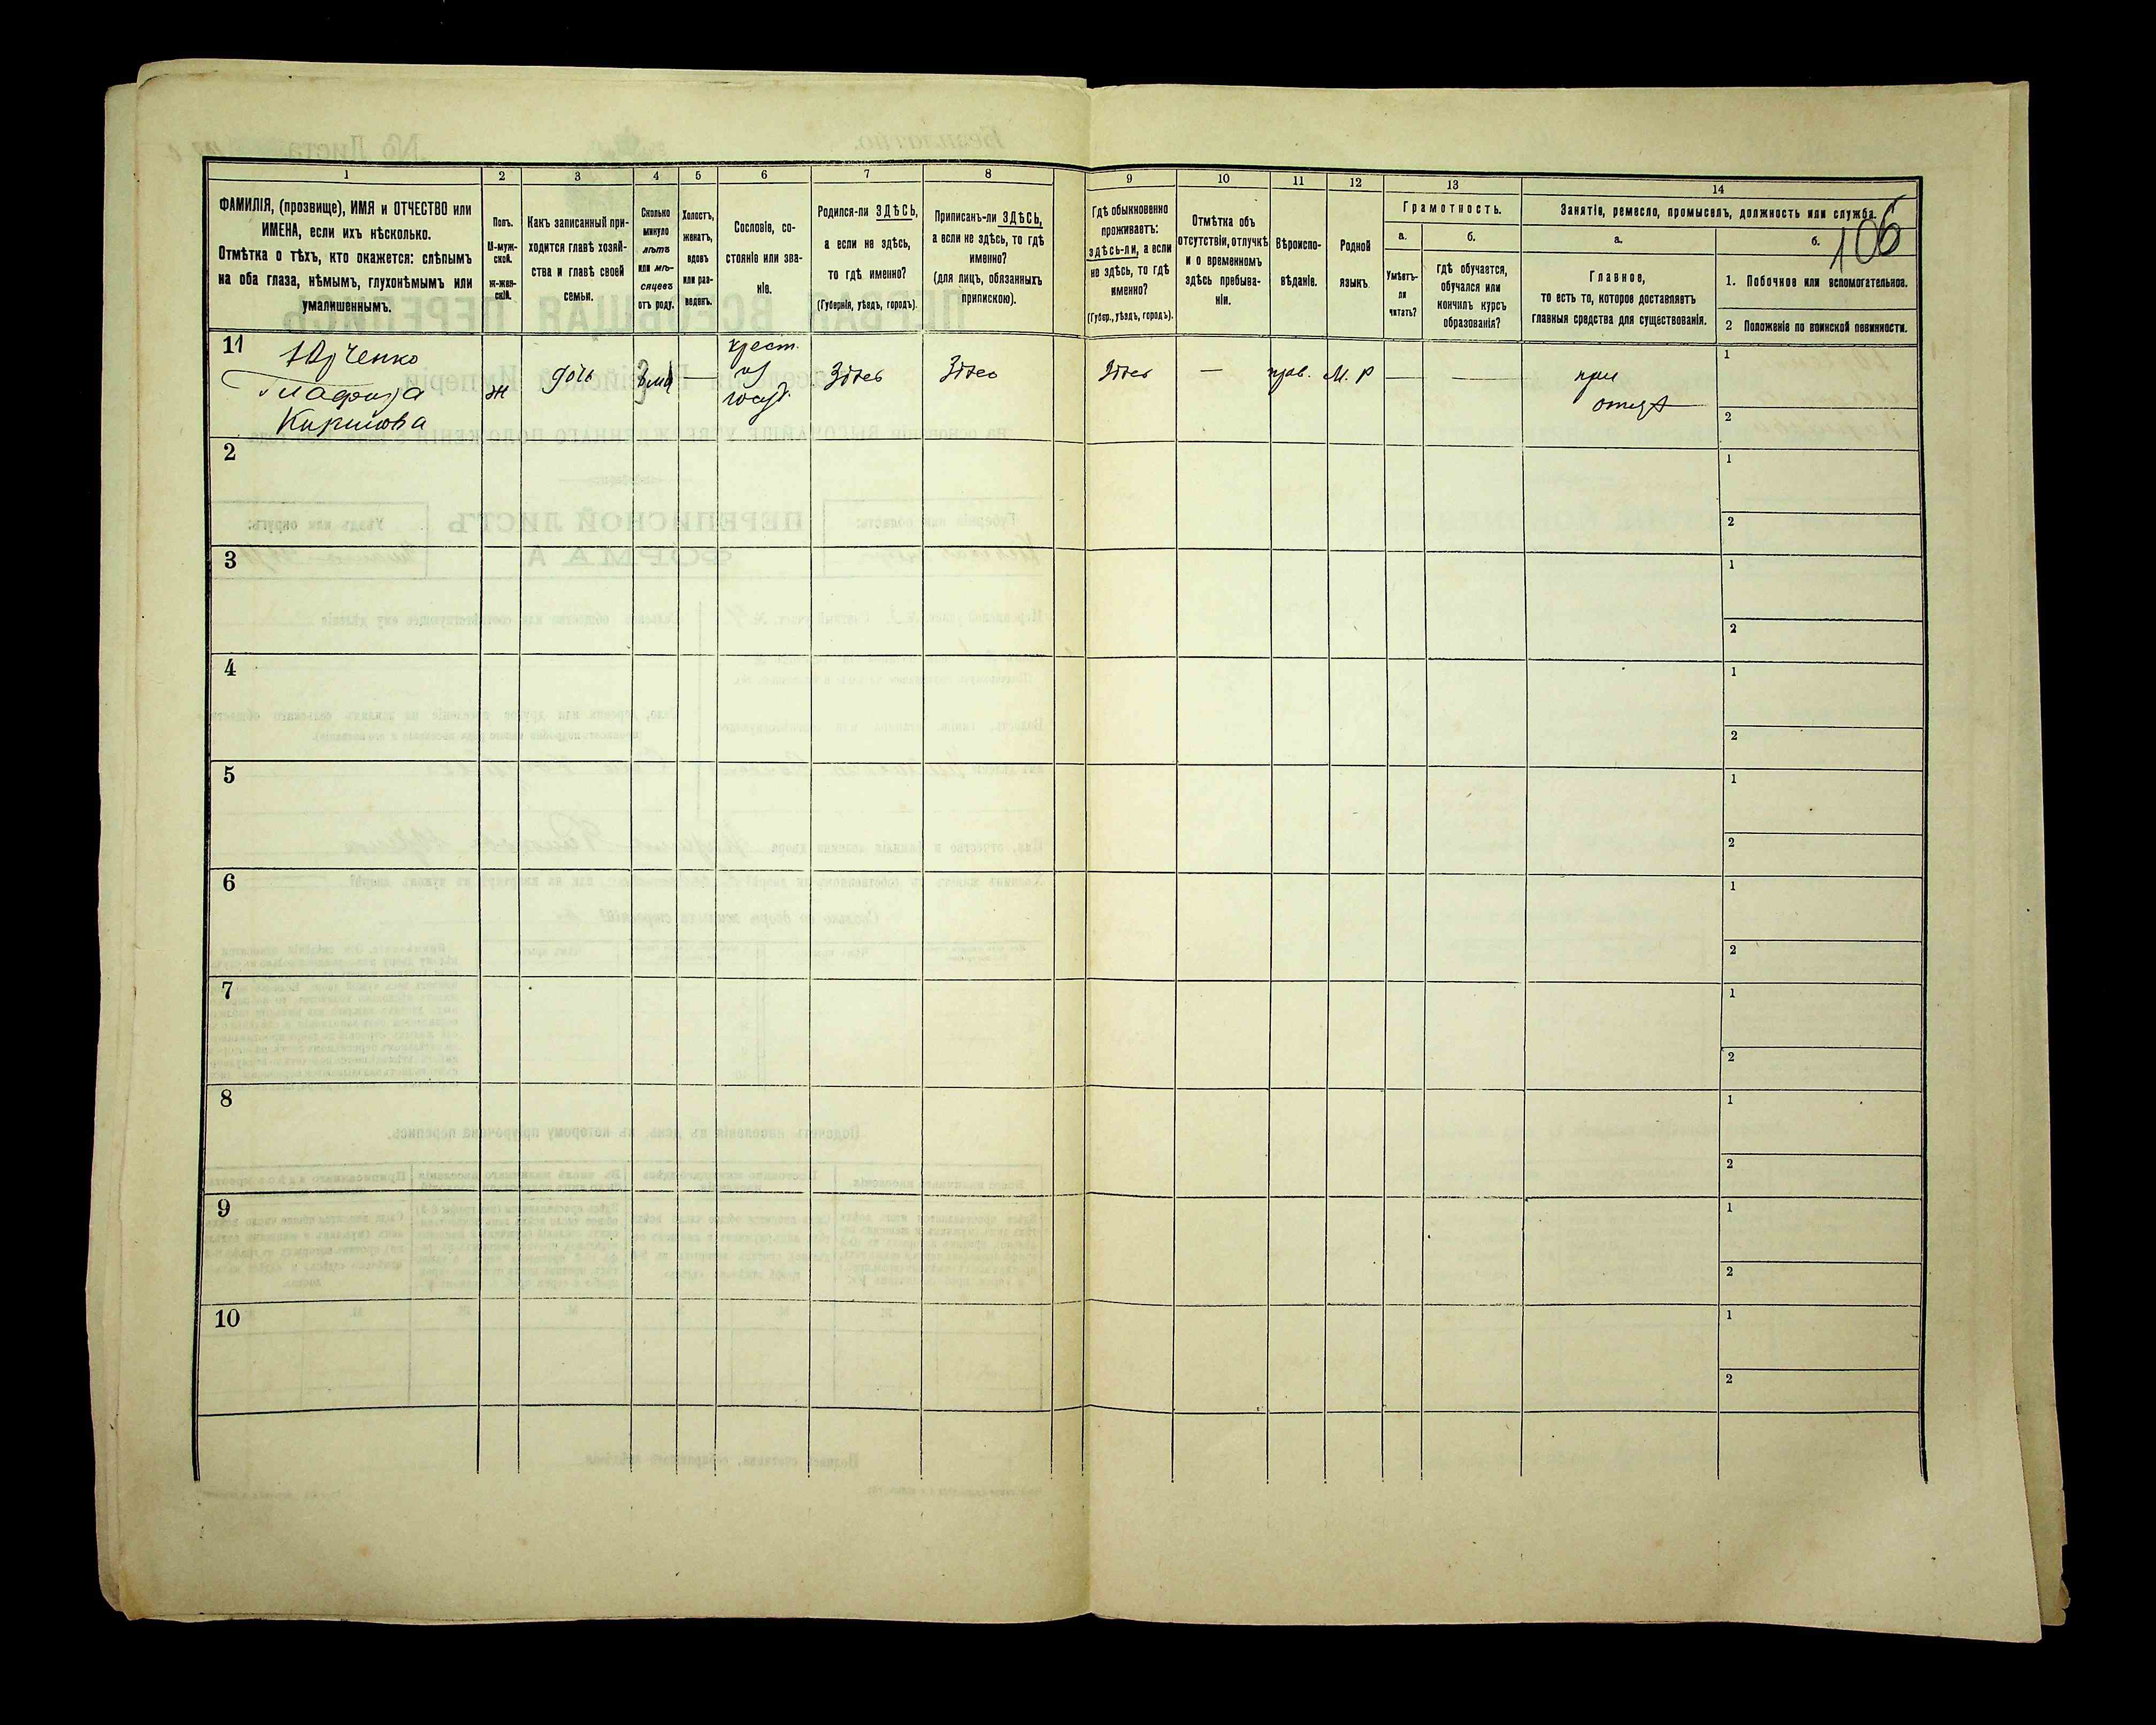 106
1
2
3
4
5
6
7
8
9
10
11
12
13
14
ФАМИЛІЯ, (прозвище), ИМЯ и ОТЧЕСТВО или
ИМЕНА, если ихъ нѣсколько.
Отмѣтка о тѣхъ, кто окажется: слѣпымъ
на оба глаза, нѣмымъ, глухонѣмымъ или
умалишеннымъ.
Полъ.
М-муж-
ской.
ж-жен-
скій.
Какъ записанный при-
ходится главѣ хозяй-
ства и главѣ своей
семьи.
Сколько
минуло
лѣтъ
или мѣ-
сяцевъ
отъ роду.
Холостъ,
женатъ,
вдовъ
или раз-
веденъ.
Сословіе, со-
стояніе или зва-
ніе.
Родился-ли ЗДѢСЬ,
а если не здѣсь,
то гдѣ именно?
(Губернія, уѣздъ, городъ).
Приписанъ-ли ЗДѢСЬ,
а если не здѣсь, то гдѣ
именно?
(для лицъ, обязанныхъ
припискою).
Гдѣ обыкновенно
проживаетъ:
здѣсь-ли, а если
не здѣсь, то гдѣ
именно?
(Губер., уѣздъ, городъ).
Отмѣтка объ
отсутствіи, отлучкѣ
и о временномъ
здѣсь пребыва-
ніи.
Вѣроиспо-
вѣданіе.
Родной
языкъ.
Грамотность.
а.
Умѣетъ-
ли
читать?
б.
гдѣ обучается,
обучался или
кончилъ курсъ
образованія?
Занятіе, ремесло, промыселъ, должность или служба.
а.
Главное,
то есть то, которое доставляетъ
главныя средства для существованія.
б.
1. Побочное или вспомогательное.
2 Положеніе по воинской повинности.
11
Юрченко
Глафира
Кирилова
ж
дочь
крест.
из
госуд.
Здесь
Здесь
Здесь
—
прав.
М. Р
—
—
при
отцѣ
1
2
2
1
2
3
1
2
4
1
2
5
1
2
6
1
2
7
1
2
8
1
2
9
1
2
10
1
2